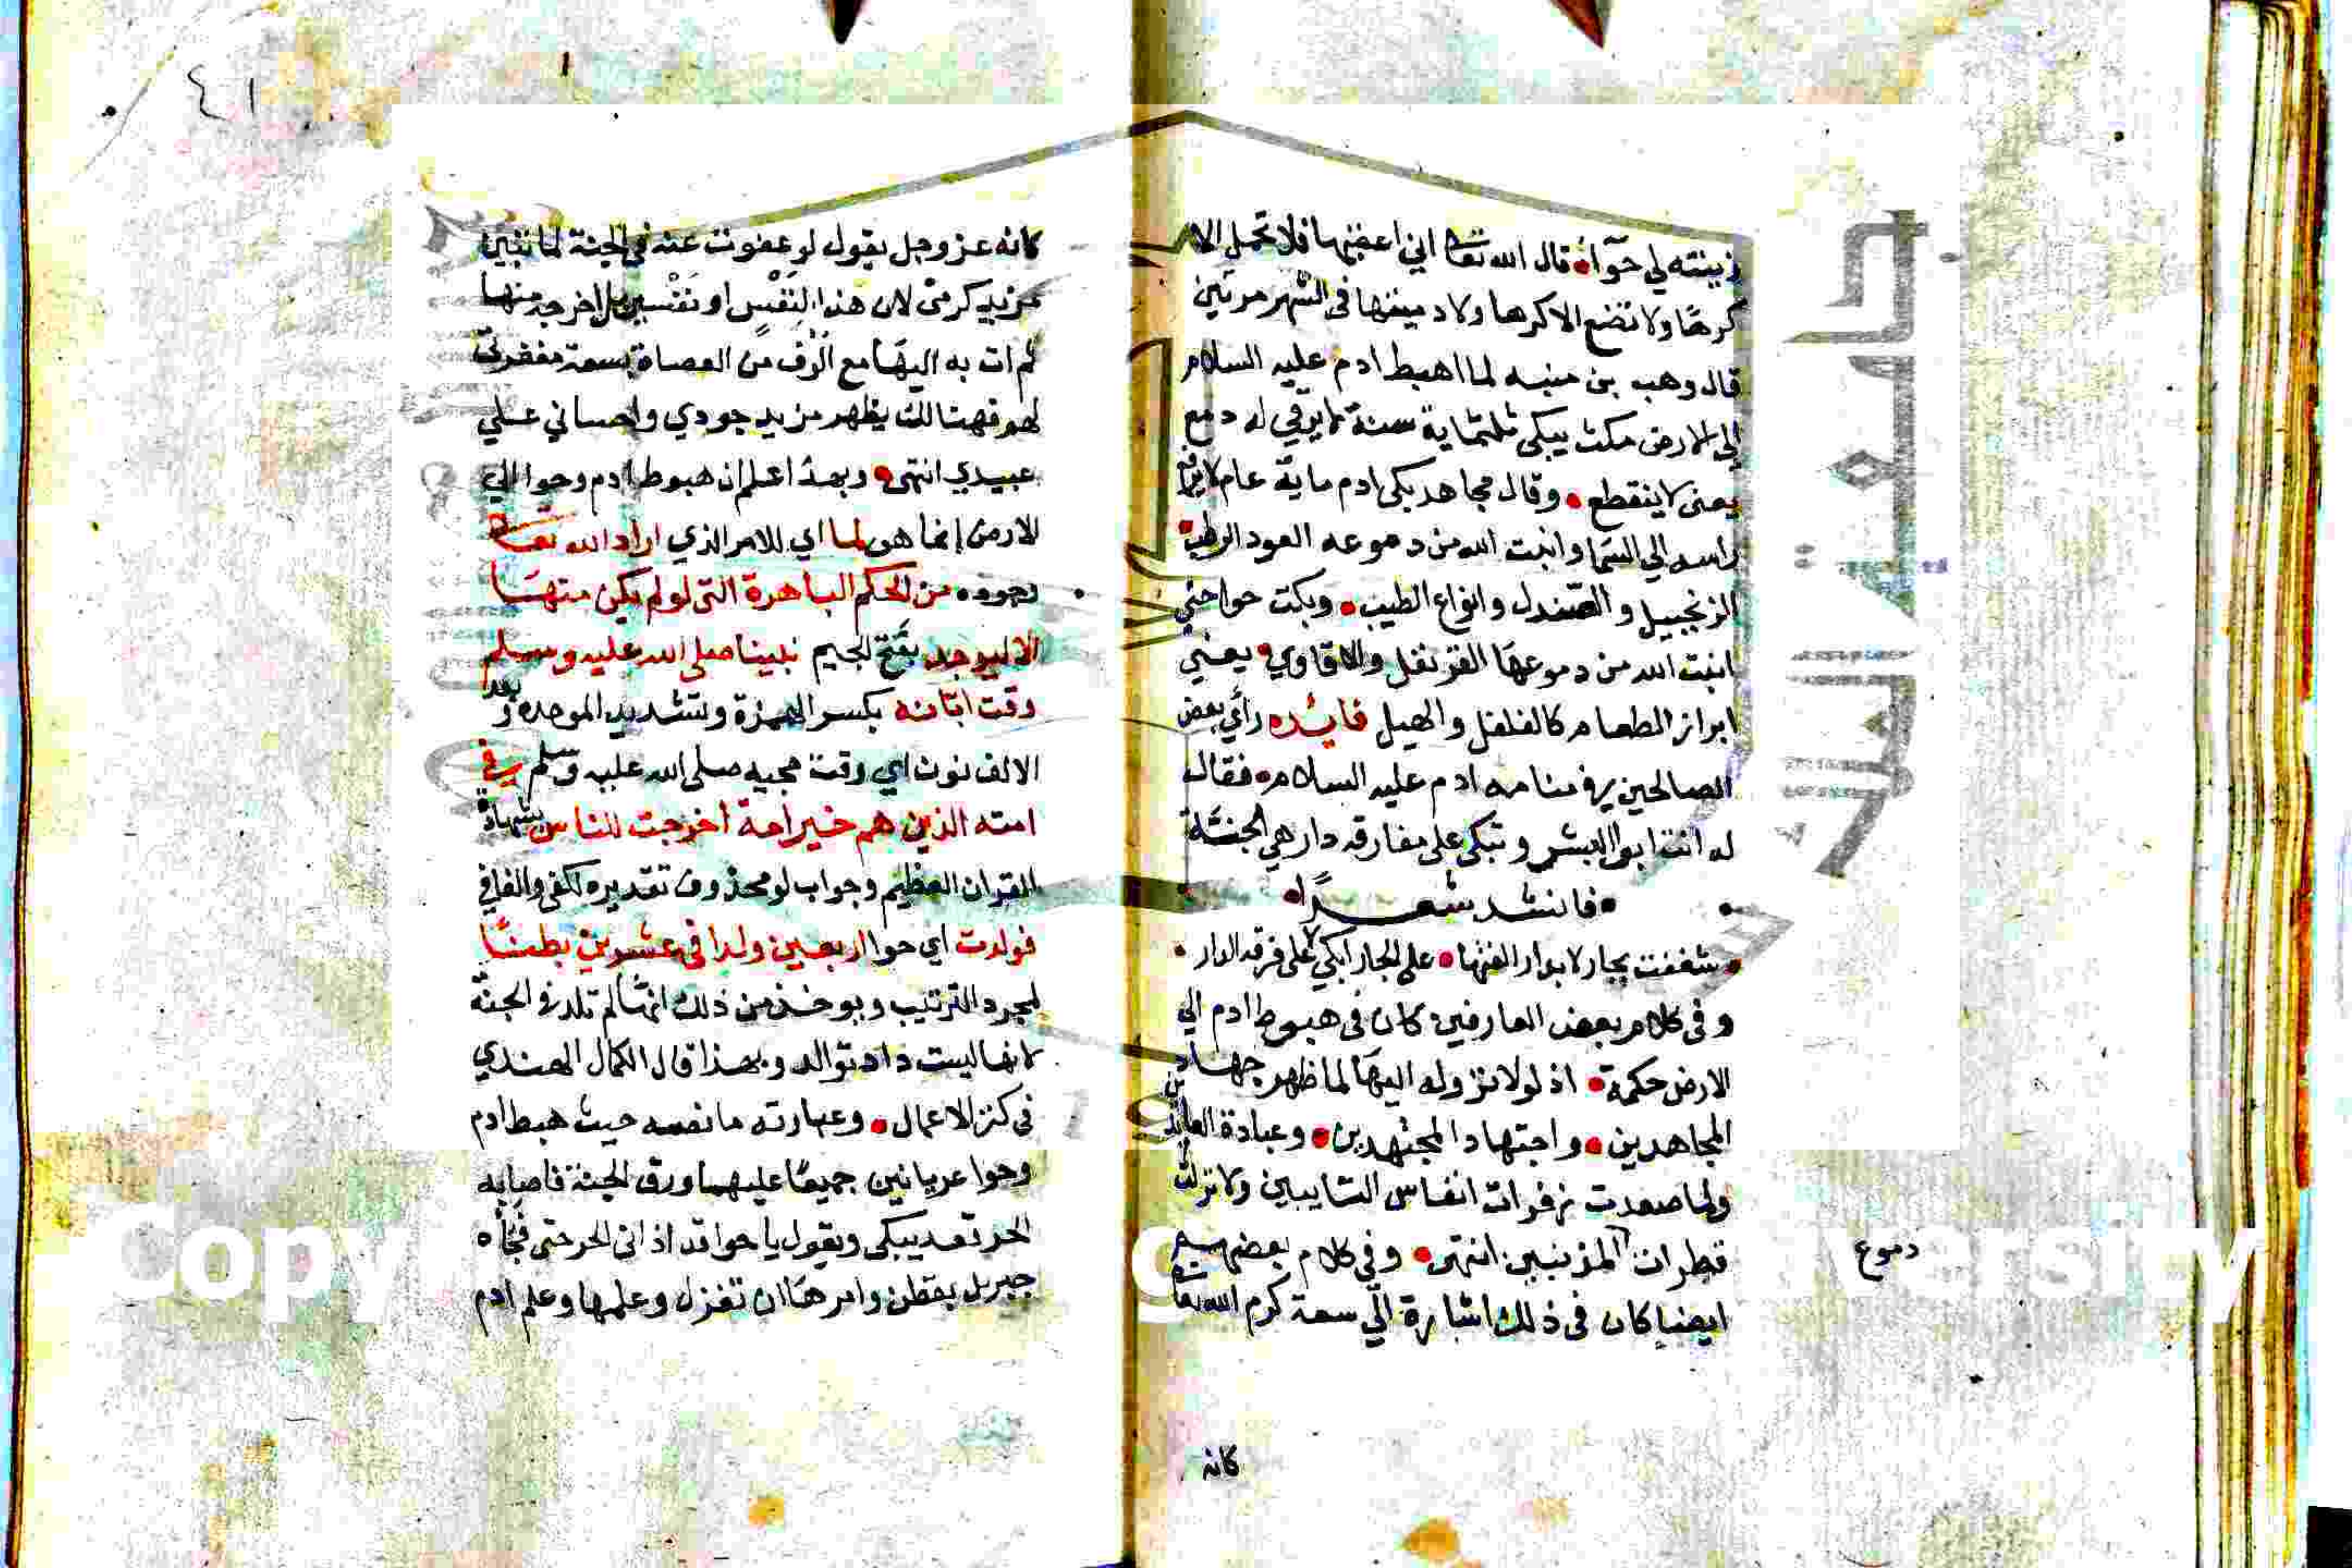 زينته لي حوآء قال الله تعا اني اعقبتها فلا تحمل الا
كرها ولا تضع الا كرها ولادمينها في الشهر مرتين
قال وهب بن منبه لما اهبط ادم عليه السلام
الى الارض مكث يبكي ثلثماية سنة لا يرقي له دمع
يعني لا ينقطع وقال مجاهد بكى ادم ماية عام لا يرفع
راسه الي السما وانبت الله من دموعه العود الرطب
الزنجبيل والصندل وانواع الطيب وبكت حوا حتي
انبت الله من دموعها القرنفل والافاوي يعني
ابراز الطعام كالفلفل والهيل فايده رأي بعض
الصالحين في منامه ادم عليه السلام فقال
له انت ابو البشر وتبكي على مفارقه دار هي الجنة
فانشد شعرًا
شغفت بجار لا بدار الفتها على الجار ابكي لا على فرقه الدار
وفي كلام بعض العارفين كان في هبوط ادم الي
الارض حكمة اذ لولا نزوله اليها لما ظهر جهاد
المجاهدين واجتهاد المجتهدين وعبادة العابدين
ولما صعدت زفرات انفاس التايبين ولا نزلت
قطرات المذنبين انتهى وفي كلام بعضهم
دموع
ايضا كان في ذلك اشارة الي سعة كرم الله تعا
كانه
٤١
كانه عز وجل يقول لو عفوت عنه في الجنة لما تبين
مزيد كرمي لان هذا لنفس او نفسين بل اخرجه منها
ثم ات به اليها مع الوف من العصاة بسعة مغفرتي
لهم فهنالك يظهر مزيد جودي واحساني علي
عبيدي انتهى وبعد اعلم ان هبوط ادم وحوا الي
الارض إنما هو لما اي للامر الذي اراد الله تعا
وجوده من الحكم الباهرة التي لو لم يكن منها
الا ليوجد بفتح الجيم نبينا صلى الله عليه وسلم
وقت ابانه بكسر الهمزة وتشديد الموحده وبعد
الالف نون اي وقت مجيه صلى الله عليه وسلم في
امته الذين هم خير امة اخرجت للناس بشهادة
القران العظيم وجواب لو محذوف تقديره لكفى والفا في
فولدت اي حوا اربعين ولدا في عشرين بطنا
لمجرد الترتيب ويوخذ من ذلك انها لم تلد في الجنة
لانها ليست دار توالد وبهذا قال الكمال الهندي
في كنز الاعمال وعبارته ما نصه حيث هبط ادم
وحوا عريانين جميعا عليهما ورق الجنة فاصابه
الحر تعد يبكي ويقول يا حوا قد اذاني الحر حتى فجاه
جبريل بقطن وامرها ان تغزل وعلمها وعلم ادم